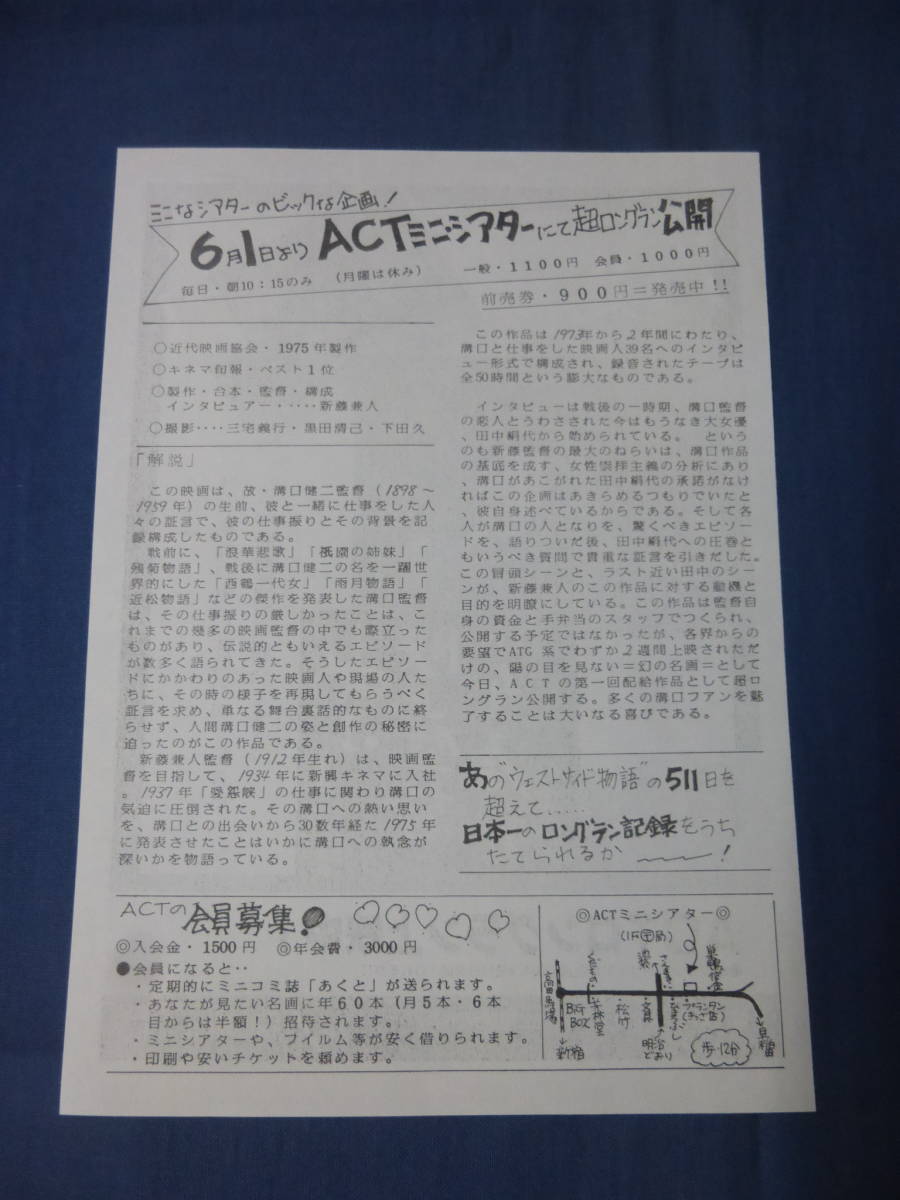 ミニなシアターのビックな企画!
6月1日より ACTミニ・シアターにて超ロングラン公開
毎日・朝10：15のみ （月曜は休み） 一般・1100円 会員・1000円
前売券・900円＝発売中!!
○近代映画協会・1975年製作
○キネマ旬報・ベスト1位
○製作・台本・監督・構成
インタビュアー・・・・新藤兼人
○撮影・・・・三宅義行・黒田清己・下田久
「解説」
この映画は、故・溝口健二監督（1898〜
1959年）の生前、彼と一緒に仕事をした人
々の証言で、彼の仕事振りとその背景を記
録構成したものである。
戦前に、「浪華悲歌」「祇園の姉妹」「
残菊物語」、戦後に溝口健二の名を一躍世
界的にした「西鶴一代女」「雨月物語」「
近松物語」などの傑作を発表した溝口監督
は、その仕事振りの厳しかったことは、こ
れまでの幾多の映画監督の中でも際立った
ものがあり、伝説的ともいえるエピソード
が数多く語られてきた。そうしたエピソー
ドにかかわりのあった映画人や現場の人た
ちに、その時の様子を再現してもらうべく
証言を求め、単なる舞台裏話的なものに終
らせず、人間溝口健二の姿と創作の秘密に
迫ったのがこの作品である。
新藤兼人監督（1912年生れ）は、映画監
督を目指して、1934年に新興キネマに入社
。1937年「愛怨峡」の仕事に関わり溝口の
気迫に圧倒された。その溝口への熱い思い
を、溝口との出会いから30数年経た1975年
に発表させたことはいかに溝口への執念が
深いかを物語っている。
この作品は1973年から2年間にわたり、
溝口と仕事をした映画人39名へのインタビ
ュー形式で構成され、録音されたテープは
全50時間という膨大なものである。
インタビューは戦後の一時期、溝口監督
の恋人とうわさされた今はもうなき大女優
、田中絹代から始められている。 という
のも新藤監督の最大のねらいは、溝口作品
の基底を成す、女性崇拝主義の分析にあり
、溝口があこがれた田中絹代の承諾がなけ
ればこの企画はあきらめるつもりでいたと
、彼自身述べているからである。そして各
人が溝口の人となりを、驚くべきエピソー
ドを、語りついだ後、田中絹代への圧巻と
もいうべき質問で貴重な証言を引きだした。
この冒頭シーンと、ラスト近い田中のシー
ンが、新藤兼人のこの作品に対する動機と
目的を明瞭にしている。この作品は監督自
身の資金と手弁当のスタッフでつくられ、
公開する予定ではなかったが、各界からの
要望でATG系でわずか2週間上映されただ
けの、陽の目を見ない＝幻の名画＝として
今日、ACTの第一回配給作品として超ロ
ングラン公開する。多くの溝口フアンを魅
了することは大いなる喜びである。
あの“ウェストサイド物語”の511日を
超えて……
日本一のロングラン記録をうち
たてられるか〜〜!
ACTの会員募集!
◎入会金・1500円 ◎年会費・3000円
●会員になると・・
・定期的にミニコミ誌「あくと」が送られます。
・あなたが見たい名画に年60本（月5本・6本
目からは半額！）招待されます。
・ミニシアターや、フイルム等が安く借りられます。
・印刷や安いチケットを頼めます。
◎ACTミニシアター◎
高田馬場
BIG
BOX
松竹
文具
明治
どおり
↓新宿
↓早稲田
歩・12分